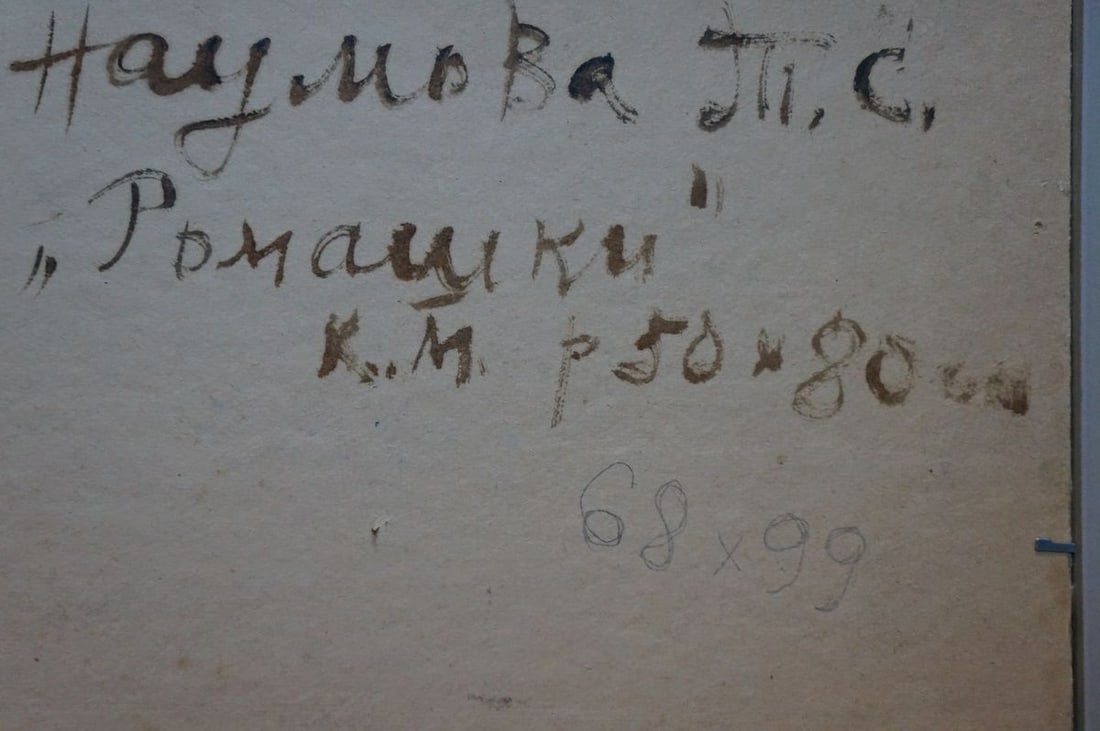 Наумова Т. С.
„Ромашки"
к. м. р 50 х 80 см
68 х 99